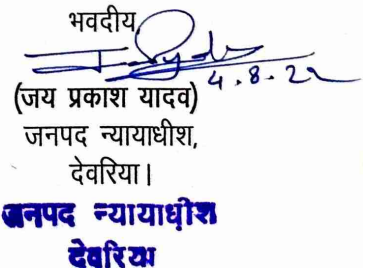 भवदीय,
4.8.22
(जय प्रकाश यादव)
जनपद न्यायाधीश,
देवरिया।
जनपद न्यायाधीश
देवरिया